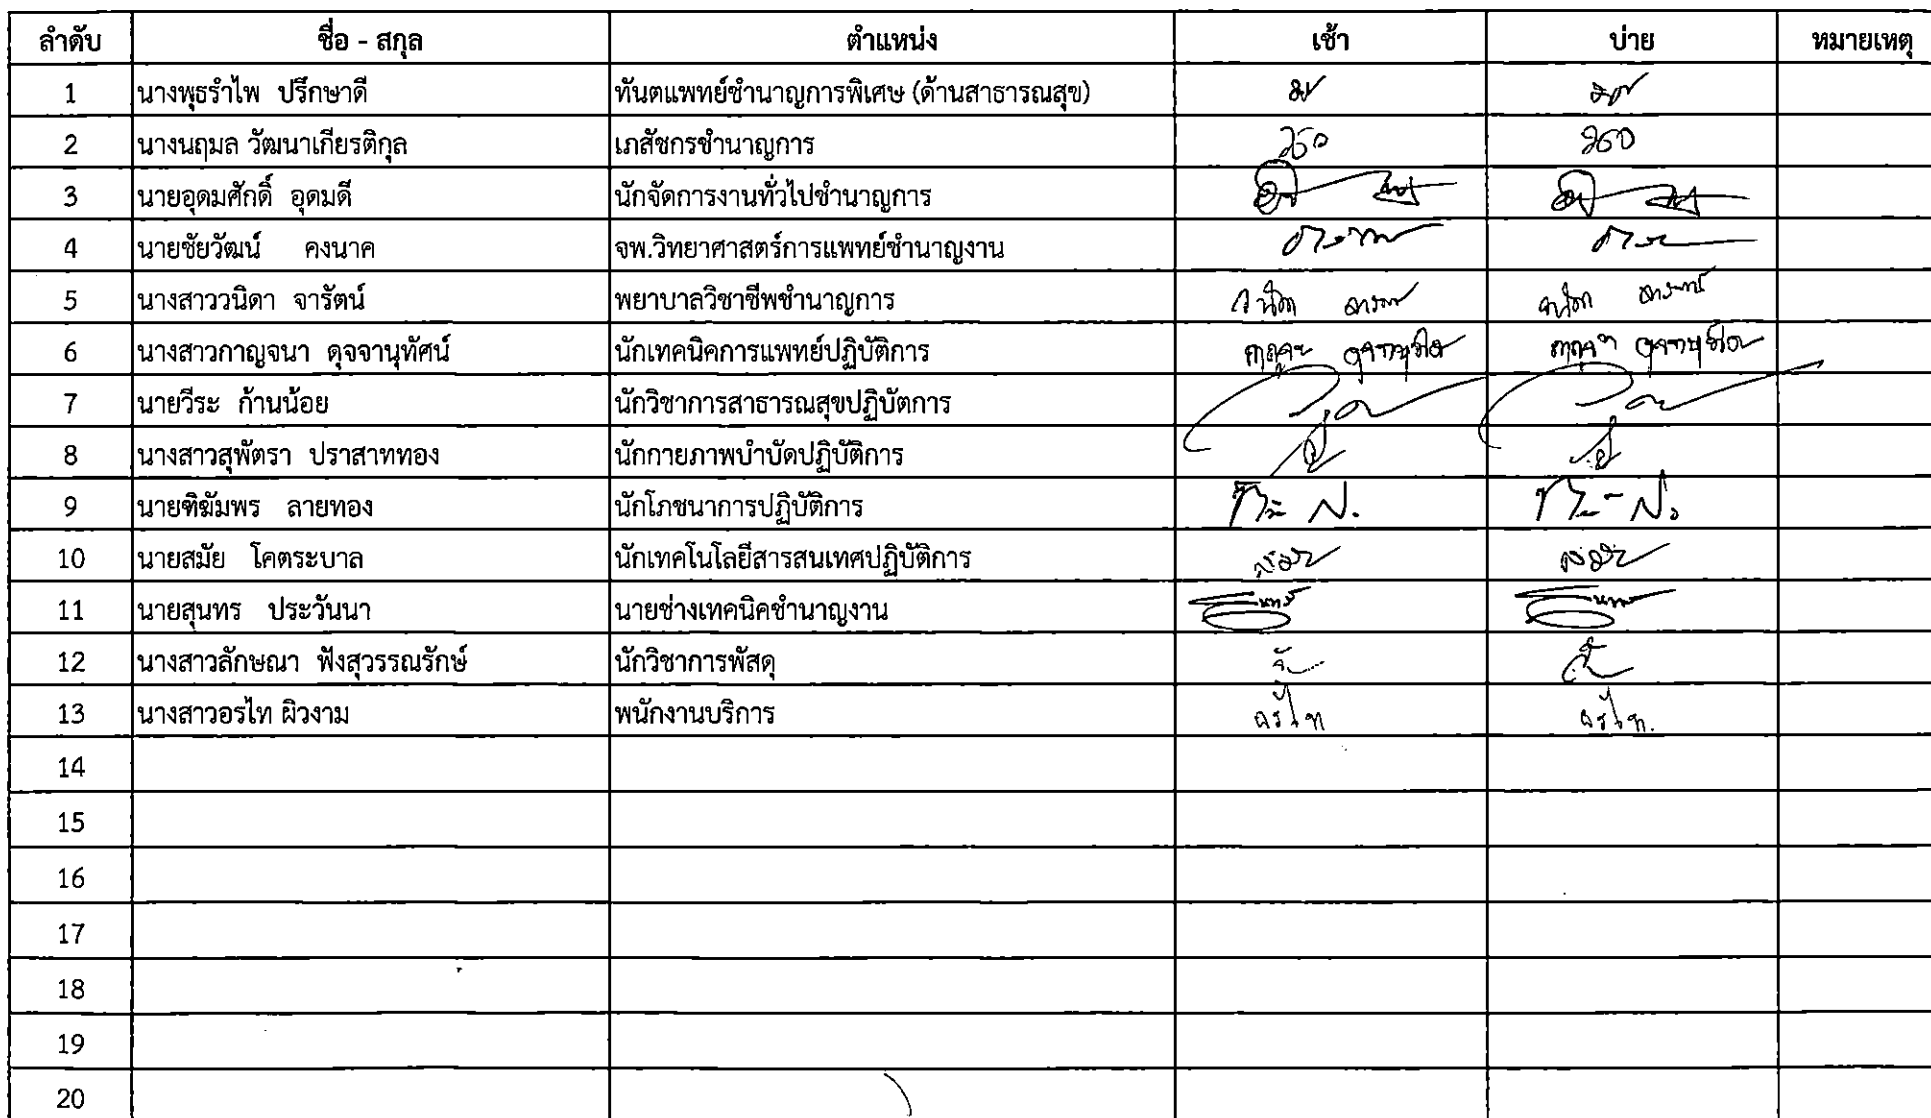 ลำดับ ชื่อ - สกุล ตำแหน่ง เช้า บ่าย หมายเหตุ
1 นางพุธรำไพ ปรึกษาดี ทันตแพทย์ชำนาญการพิเศษ (ด้านสาธารณสุข)
2 นางนฤมล วัฒนาเกียรติกุล เภสัชกรชำนาญการ
3 นายอุดมศักดิ์ อุดมดี นักจัดการงานทั่วไปชำนาญการ
4 นายชัยวัฒน์ คงนาค จพ.วิทยาศาสตร์การแพทย์ชำนาญงาน
5 นางสาววนิดา จารัตน์ พยาบาลวิชาชีพชำนาญการ
6 นางสาวกาญจนา ดุจจานุทัศน์ นักเทคนิคการแพทย์ปฏิบัติการ
7 นายวีระ ก้านน้อย นักวิชาการสาธารณสุขปฏิบัตการ
8 นางสาวสุพัตรา ปราสาททอง นักกายภาพบำบัดปฏิบัติการ
9 นายฑิฆัมพร ลายทอง นักโภชนาการปฏิบัติการ
10 นายสมัย โคตระบาล นักเทคโนโลยีสารสนเทศปฏิบัติการ
11 นายสุนทร ประวันนา นายช่างเทคนิคชำนาญงาน
12 นางสาวลักษณา ฟังสุวรรณรักษ์ นักวิชาการพัสดุ
13 นางสาวอรไท ผิวงาม พนักงานบริการ อรไท อรไท.
14
15
16
17
18
19
20